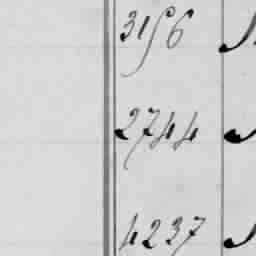 3156
2744
4237